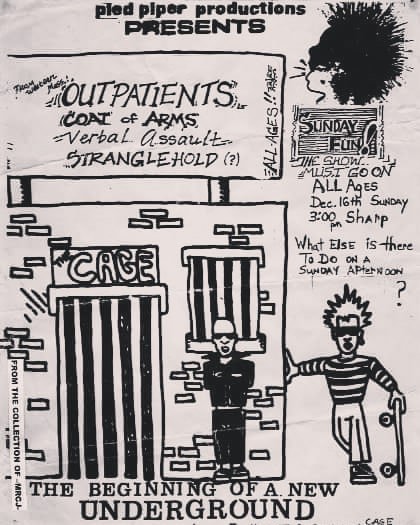 pied piper productions
PRESENTS
FROM WESTERN MASS.!
OUTPATIENTS
COAT of ARMS
Verbal Assault
STRANGLEHOLD (?)
ALL AGES!!
SUNDAY
FUN!
THE SHOW..
MUST GO ON
ALL Ages
Dec. 16th SUNDAY
3:00 pm Sharp
What ELSE is there
To DO ON A
SUNDAY AFTERNOON
?
THE CAGE
FROM THE COLLECTION OF -MRCJ-
THE BEGINNING OF A NEW
UNDERGROUND
CAGE